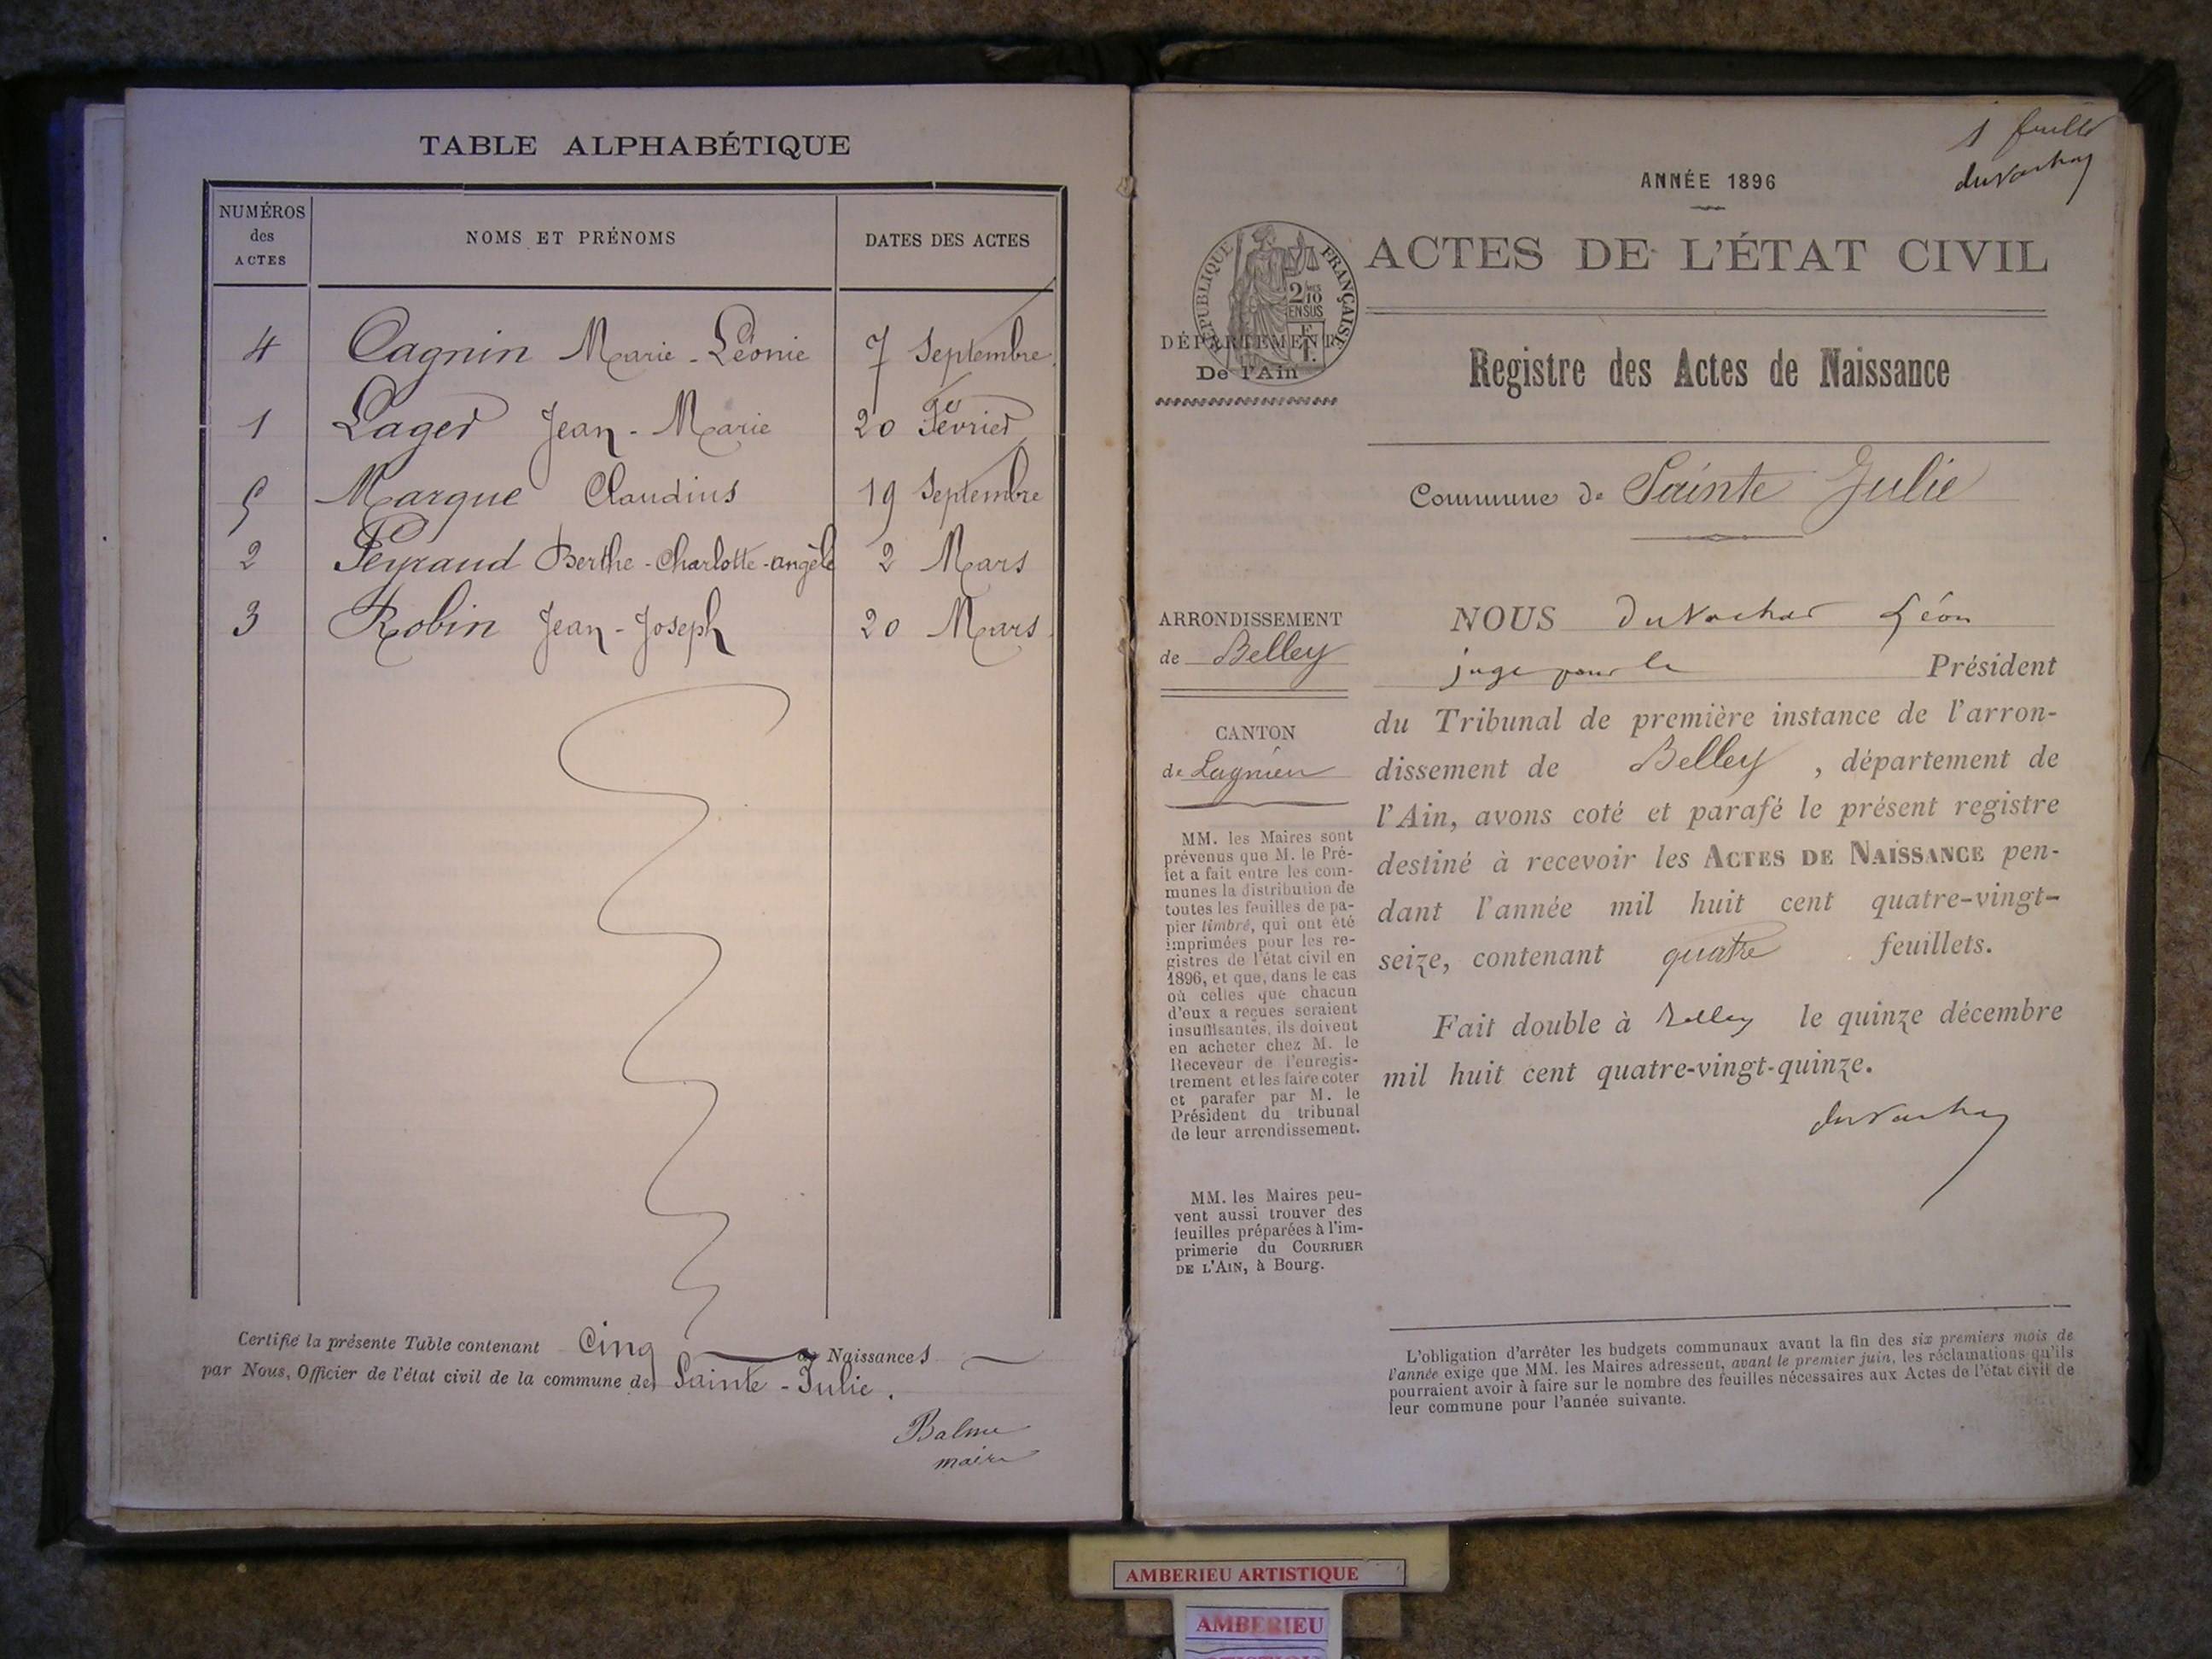 TABLE ALPHABÉTIQUE
NUMÉROS
des
ACTES
NOMS ET PRÉNOMS
DATES DES ACTES
4 Cagnin Marie-Léonie 7 Septembre
1 Lager Jean-Marie 20 Février
5 Marque Claudius 19 Septembre
2 Peyraud Berthe-Charlotte-Angèle 2 Mars
3 Robin Jean-Joseph 20 Mars
Certifié la présente Table contenant Cinq Naissances
par Nous, Officier de l'état civil de la commune de Sainte-Julie.
Balme
maire
1
ANNÉE 1896
RÉPUBLIQUE FRANÇAISE
2/10
EN SUS
ACTES DE L'ÉTAT CIVIL
DÉPARTEMENT
De l'Ain
Registre des Actes de Naissance
Commune de Sainte Julie
ARRONDISSEMENT
de Belley
CANTON
de Lagnieu
MM. les Maires sont
prévenus que M. le Pré-
fet a fait entre les com-
munes la distribution de
toutes les feuilles de pa-
pier timbré, qui ont été
imprimées pour les re-
gistres de l'état civil en
1896, et que, dans le cas
où celles que chacun
d'eux a reçues seraient
insuffisantes, ils doivent
en acheter chez M. le
Receveur de l'enregis-
trement et les faire coter
et parafer par M. le
Président du tribunal
de leur arrondissement.
MM. les Maires peu-
vent aussi trouver des
feuilles préparées à l'im-
primerie du COURRIER
DE L'AIN, à Bourg.
NOUS Léon
juge pour le Président
du Tribunal de première instance de l'arron-
dissement de Belley, département de
l'Ain, avons coté et parafé le présent registre
destiné à recevoir les ACTES DE NAISSANCE pen-
dant l'année mil huit cent quatre-vingt-
seize, contenant quatre feuillets.
Fait double à Belley le quinze décembre
mil huit cent quatre-vingt-quinze.
L'obligation d'arrêter les budgets communaux avant la fin des six premiers mois de
l'année exige que MM. les Maires adressent, avant le premier juin, les réclamations qu'ils
pourraient avoir à faire sur le nombre des feuilles nécessaires aux Actes de l'état civil de
leur commune pour l'année suivante.
AMBERIEU ARTISTIQUE
AMBERIEU